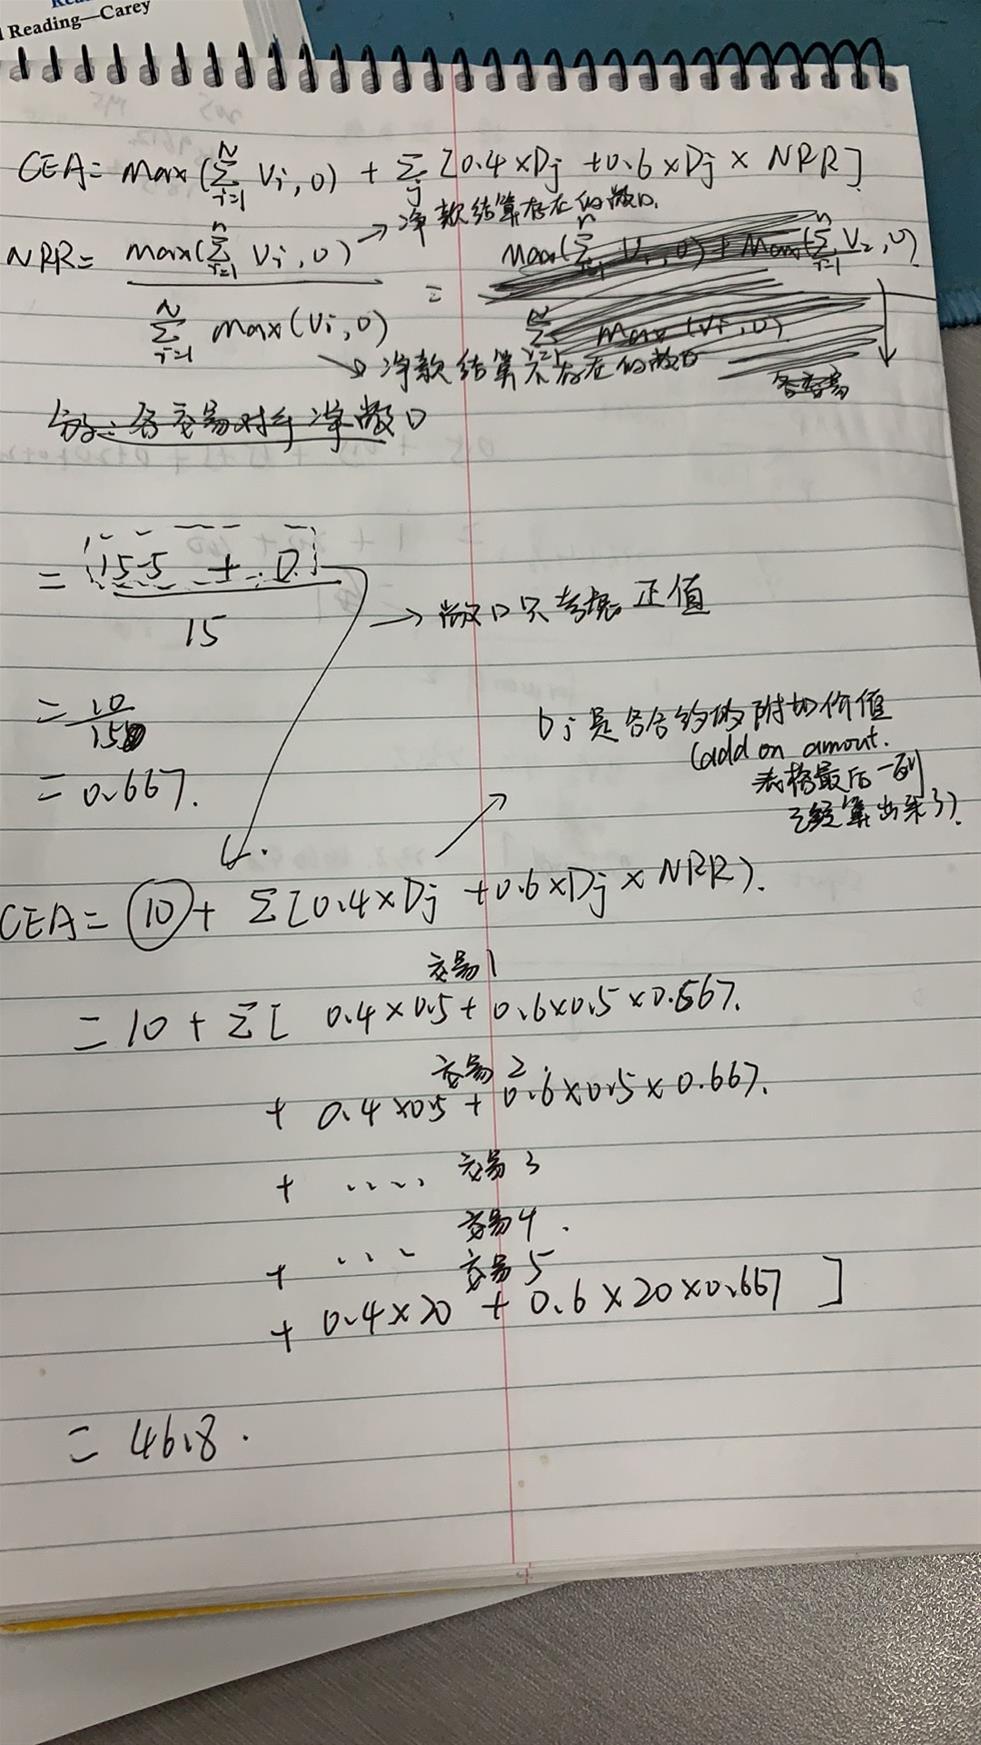 Reading—Carey
CEA = max(∑_{i=1}^{N} Vi, 0) + ∑_j [0.4×Dj + 0.6×Dj × NRR]
→ 净款结算存在的敞口.
NRR = max(∑_{i=1}^{n} Vi, 0) / ∑_{i=1}^{N} max(Vi, 0) =
→ 净款结算不存在的敞口
分子: 各交易对手净敞口
= (15-5 + 0) / 15
→ 敞口只考虑正值
= 10/15
= 0.667.
Dj 是各合约的附加价值
(add on amout.
表格最后一列
已经算出来了).
CEA = 10 + ∑[0.4×Dj + 0.6×Dj × NRR).
交易1
= 10 + ∑[ 0.4×0.5 + 0.6×0.5×0.667.
交易2
+ 0.4×0.5 + 0.6×0.5×0.667.
+ .... 交易3
交易4.
+ ...
交易5
+ 0.4×20 + 0.6×20×0.667 ]
= 46.8.